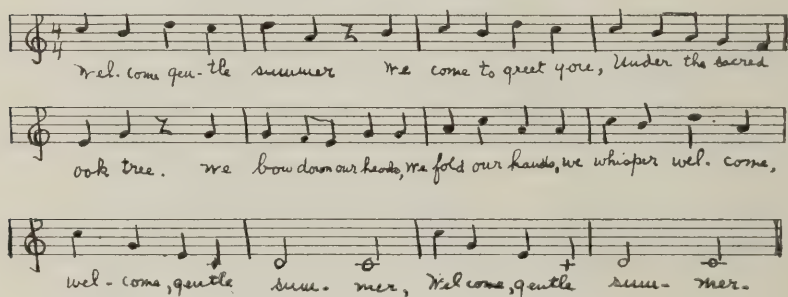 4 4
Wel-come gen-tle summer We come to greet you, Under the sacred
oak tree. We bow down our heads, We fold our hands, we whisper wel-come,
wel-come, gentle sum-mer, Welcome, gentle sum-mer.